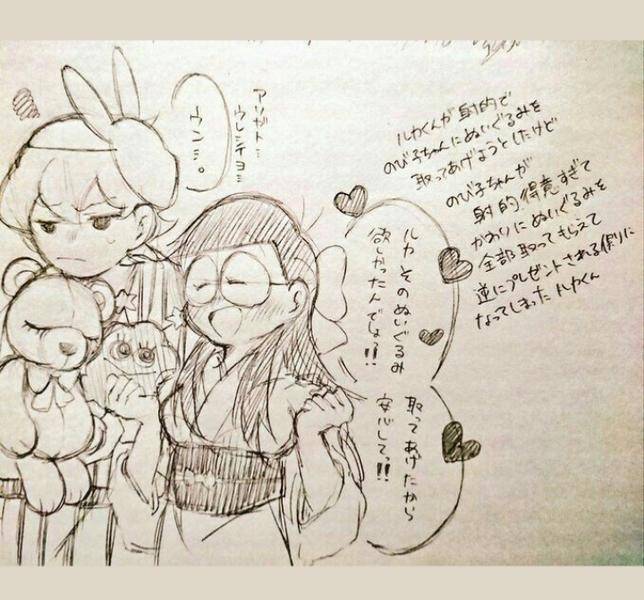 ルカくんが射的で
のび子ちゃんにぬいぐるみを
取ってあげようとしたけど
のび子ちゃんが
射的得意すぎて
かわりにぬいぐるみを
全部取ってもらえて
逆にプレゼントされる側に
なってしまったルカくん
ルカ そのぬいぐるみ
欲しかったんでしょ!!
取ってあげたから
安心してっ!!
アリガト…
ウレシイヨ…
ウン…。